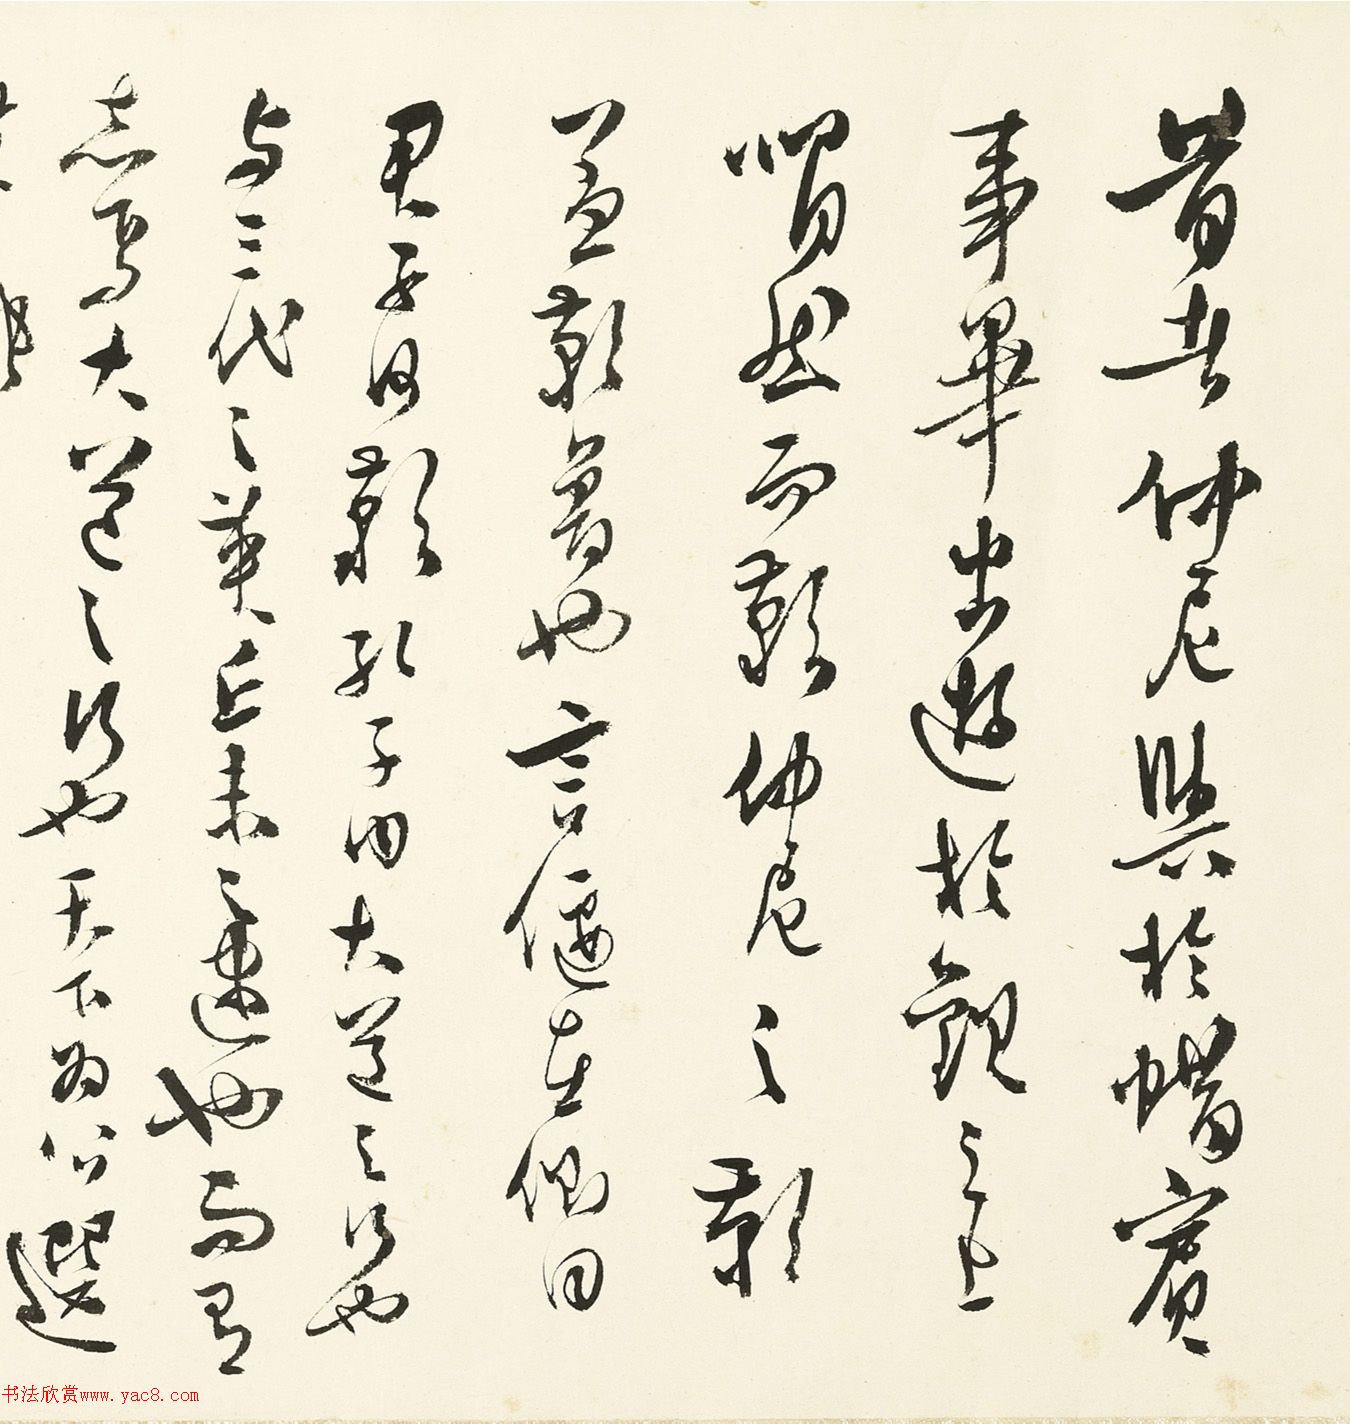 昔者仲尼與於蜡賓
事畢出遊於觀之上
喟然而歎仲尼之歎
盖歎魯也言偃在側曰
君子何歎孔子曰大道之行也
与三代之英丘未之逮也而有
志焉大道之行也天下為公選
书法欣赏www.yac8.com